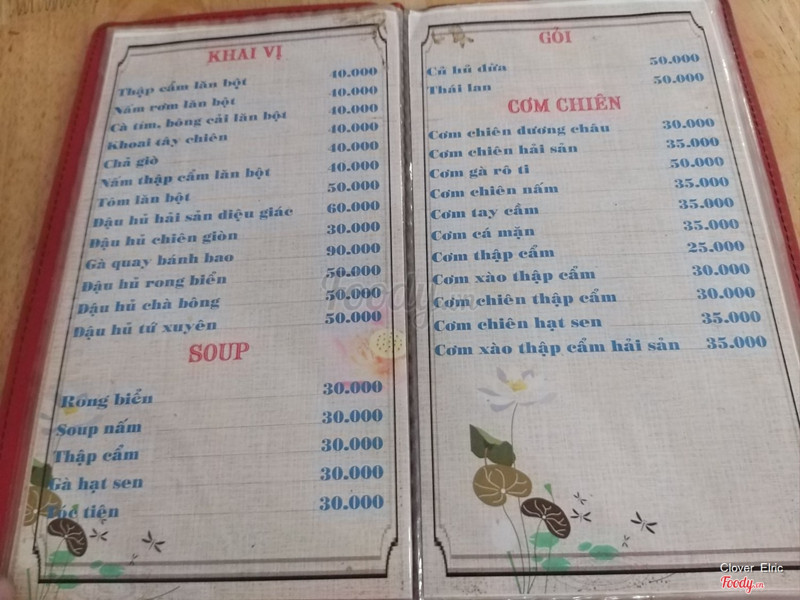 KHAI VỊ
Thập cẩm lăn bột 40.000
Nấm rơm lăn bột 40.000
Cà tím, bông cải lăn bột 40.000
Khoai tây chiên 40.000
Chả giò 40.000
Nấm thập cẩm lăn bột 40.000
Tóm lăn bột 50.000
Đậu hủ hải sản diệu giác 60.000
Đậu hủ chiên giòn 30.000
Gà quay bánh bao 90.000
Đậu hủ rong biển 50.000
Đậu hủ chà bông 50.000
Đậu hủ tứ xuyên 50.000
SOUP
Rong biển 30.000
Soup nấm 30.000
Thập cẩm 30.000
Gà hạt sen 30.000
Tóc tiên 30.000
GỎI
Củ hủ dừa 50.000
Thái lan 50.000
CƠM CHIÊN
Cơm chiên dương châu 30.000
Cơm chiên hải sản 35.000
Cơm gà rô ti 50.000
Cơm chiên nấm 35.000
Cơm tay cầm 35.000
Cơm cá mặn 35.000
Cơm thập cẩm 25.000
Cơm xào thập cẩm 30.000
Cơm chiên thập cẩm 30.000
Cơm chiên hạt sen 35.000
Cơm xào thập cẩm hải sản 35.000
Foody.vn
Clover Elric
Foody.vn